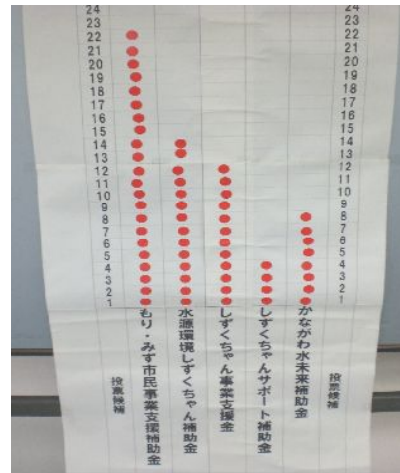 24
23
22
21
20
19
18
17
16
15
14
13
12
11
10
9
8
7
6
5
4
3
2
1
投票候補
もり・みず市民事業支援補助金
水源環境しずくちゃん補助金
しずくちゃん事業支援金
しずくちゃんサポート補助金
かながわ水未来補助金
24
23
22
21
20
19
18
17
16
15
14
13
12
11
10
9
8
7
6
5
4
3
2
1
投票候補